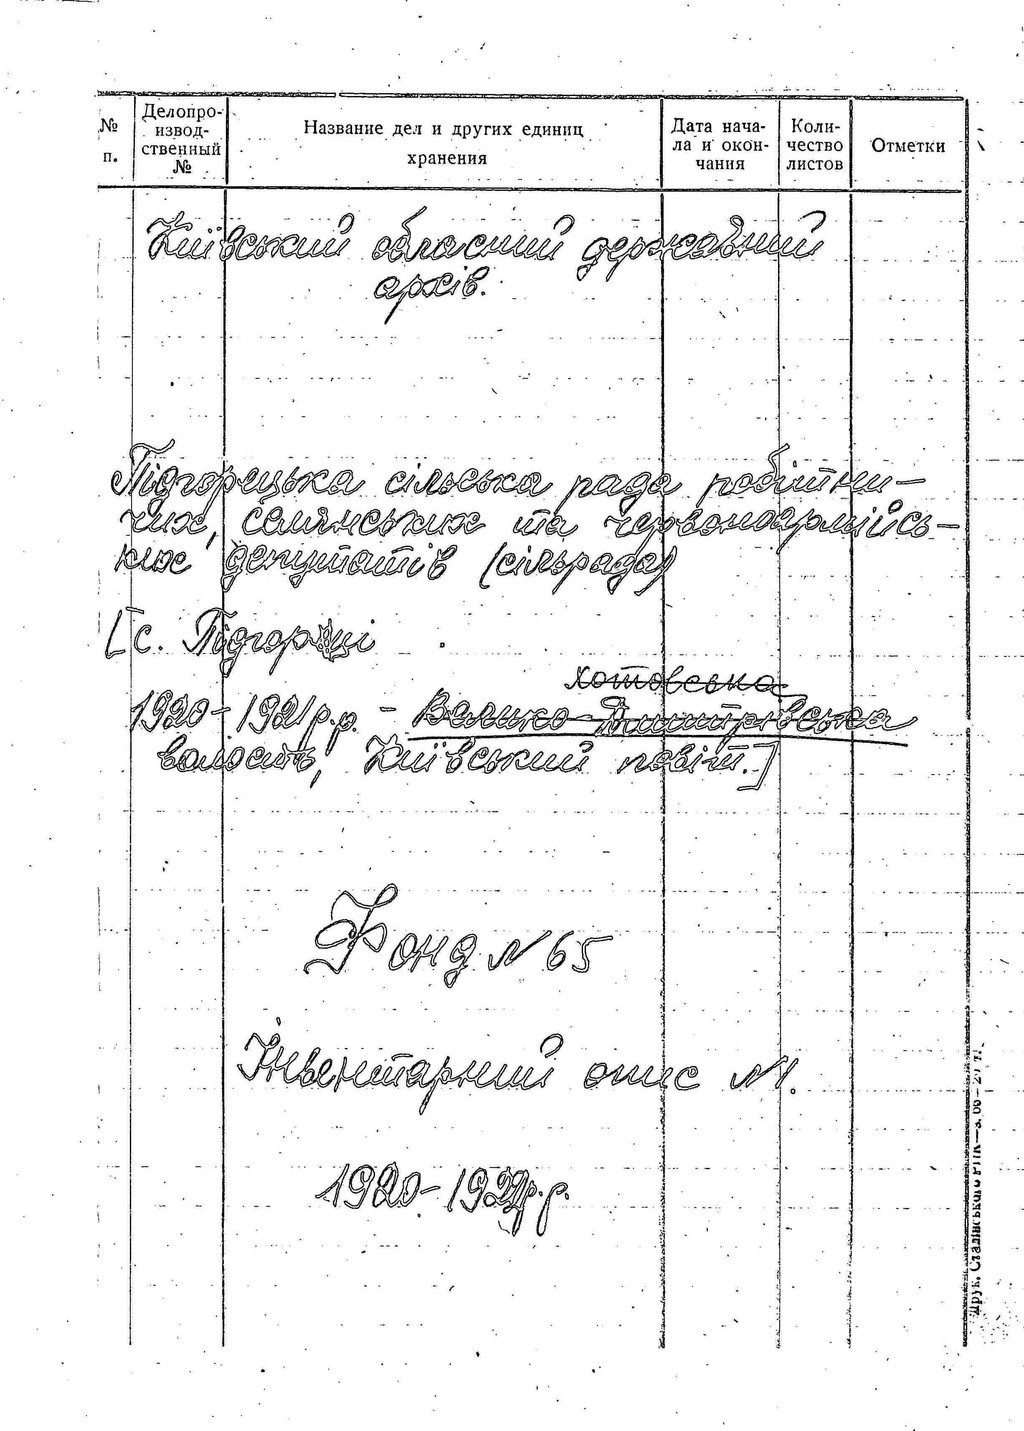 № п.
Делопро-
извод-
ственный
№
Название дел и других единиц
хранения
Дата нача-
ла и окон-
чания
Коли-
чество
листов
Отметки
Київський обласний державний
архів.
Підгорецька сільська рада робітни-
чих, селянських та червоноармійсь-
ких депутатів (сільрада)
[с. Підгорці
хотовська
1920-1921 р.р. - Велико-Дмитрівська
волость, Київський повіт.]
Фонд № 65
Інвентарний опис №1.
1920-1922 р.р.
Друк. Сталінського РПК